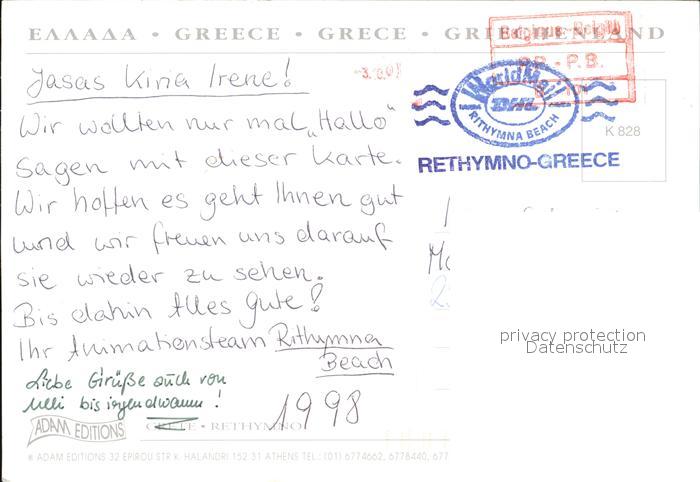 ΕΛΛΑΔΑ • GREECE • GRECE • GRIECHENLAND
Jasas Kiria Irene!
Wir wollten nur mal „Hallo"
sagen mit dieser Karte.
Wir hoffen es geht Ihnen gut
und wir freuen uns darauf
sie wieder zu sehen.
Bis dahin Alles Gute!
Ihr Animationsteam Rithymna
Beach
Liebe Grüße auch von
Melli bis irgendwann!
1998
ADAM EDITIONS
CRETE • RETHYMNO
® ADAM EDITIONS 32 EPIROU STR K. HALANDRI 152 31 ATHENS TEL.: (01) 6774662, 6778440, 677
Belgique - België
P.B. - P.B.
WorldMail
DHL
RITHYMNA BEACH
RETHYMNO-GREECE
K 828
privacy protection
Datenschutz